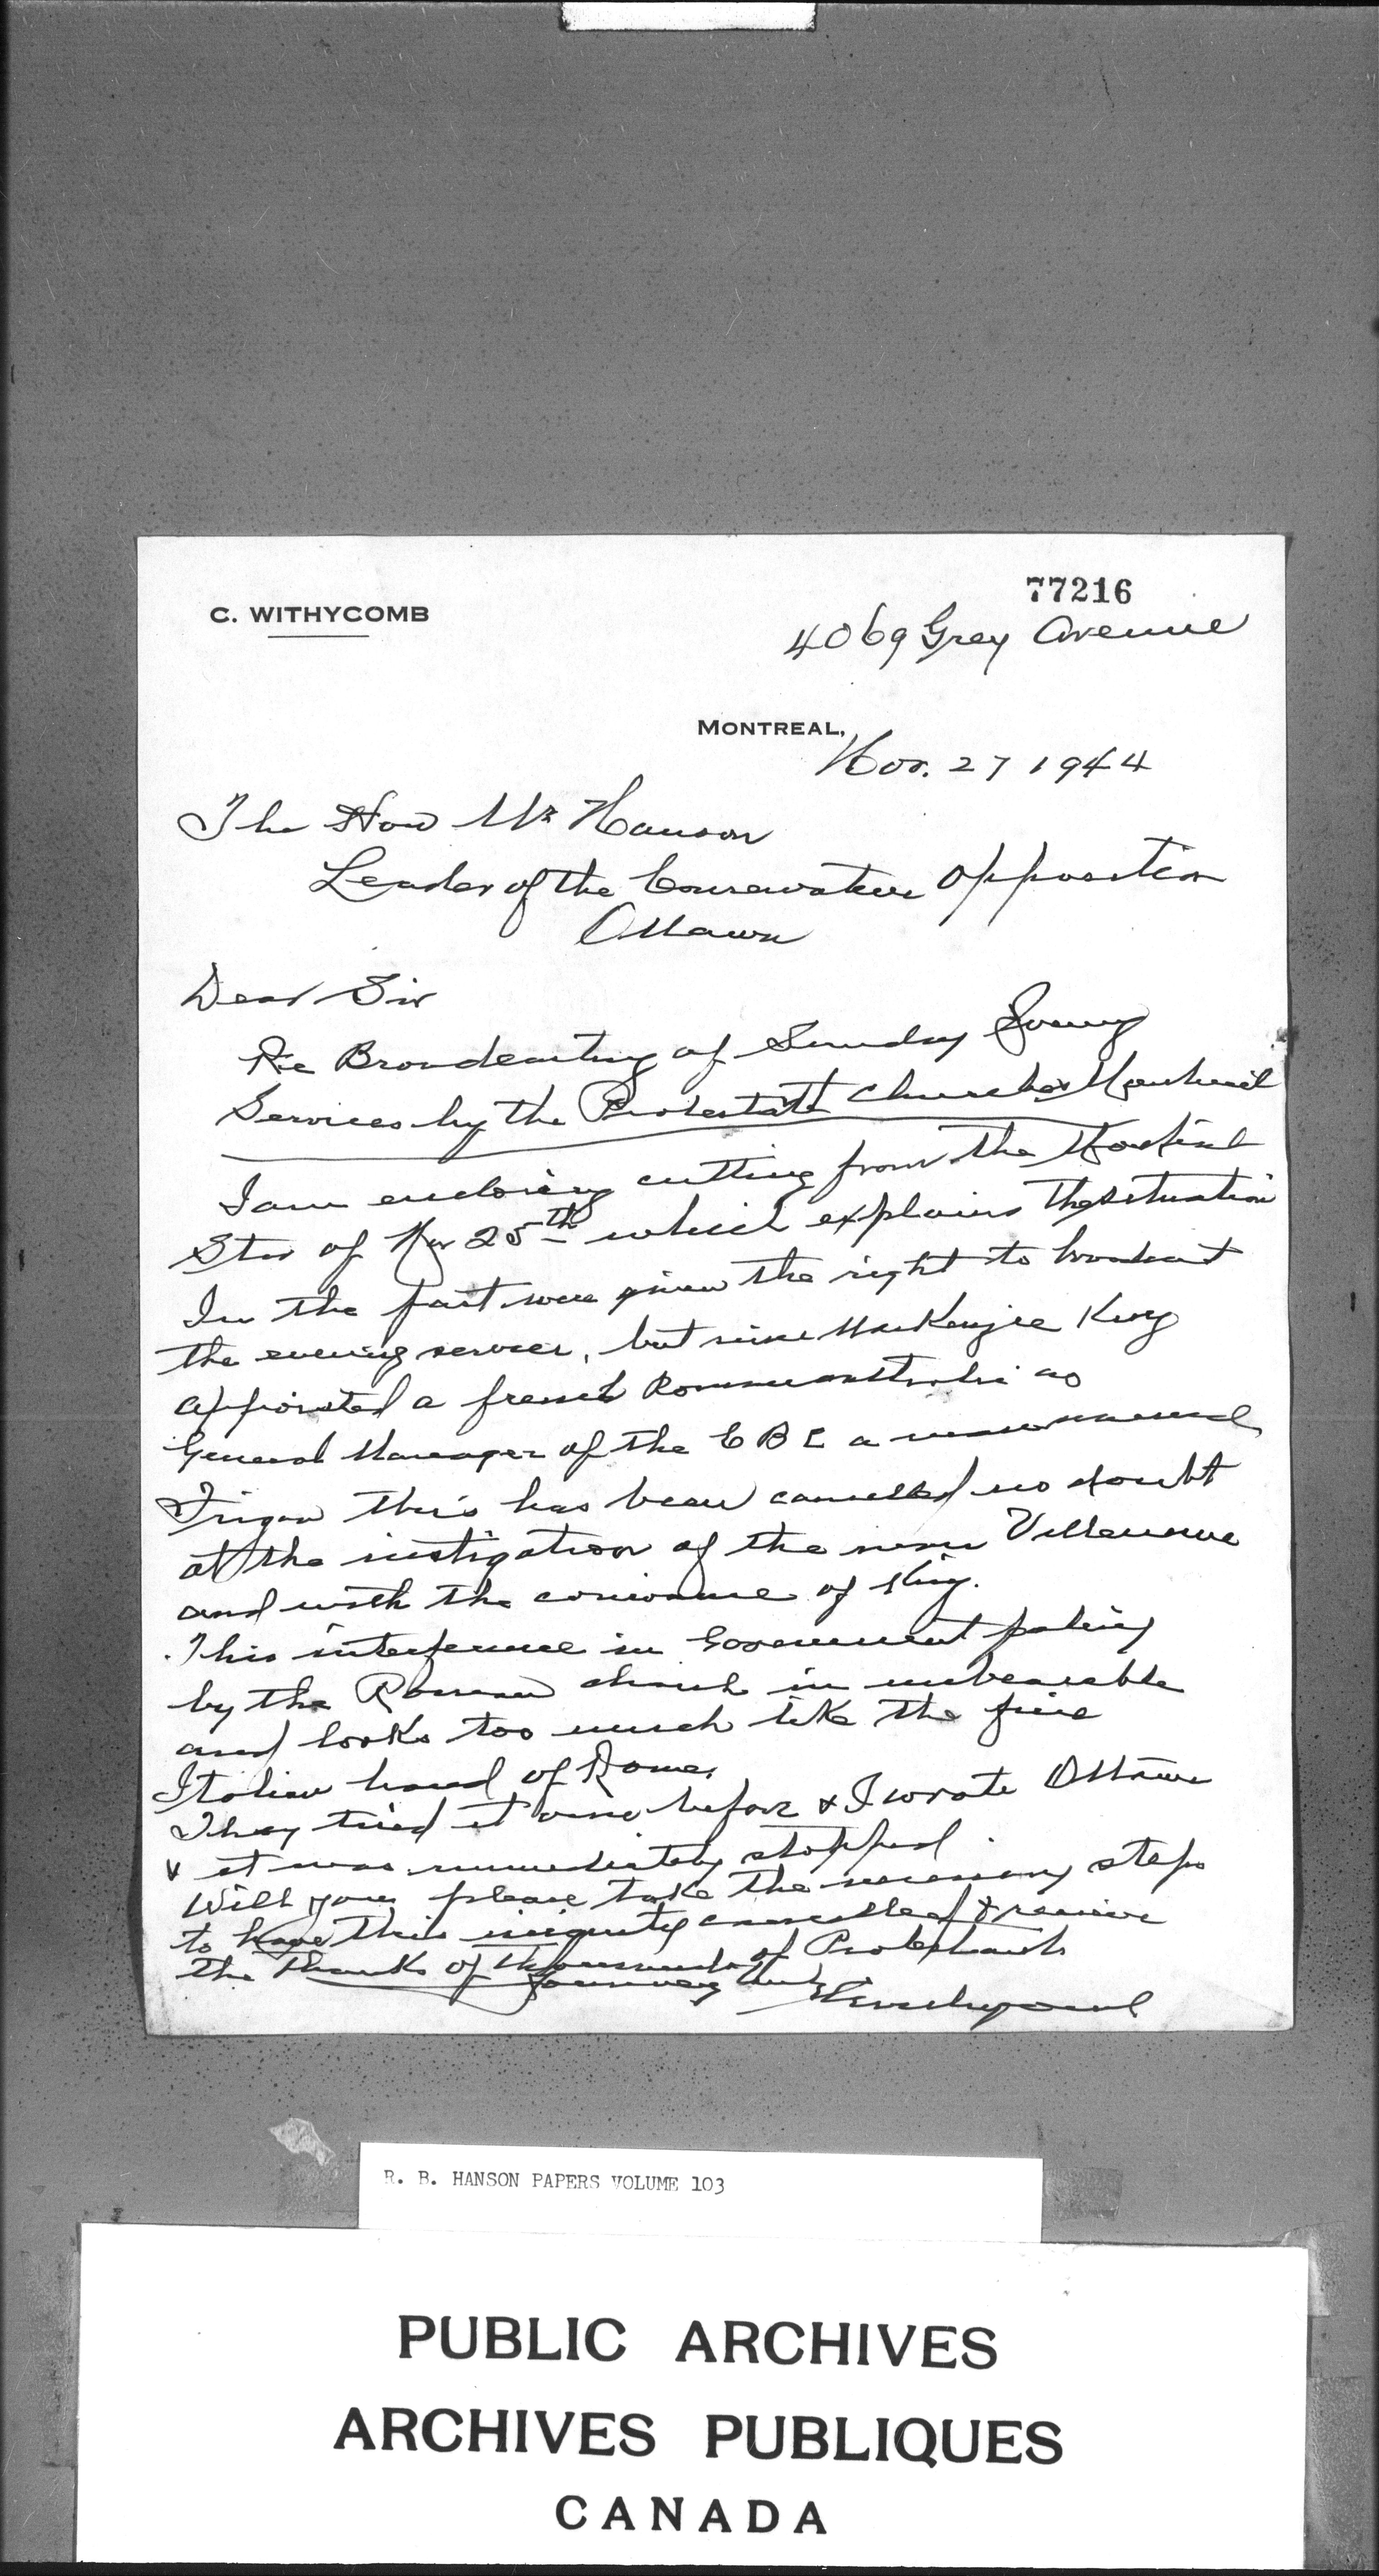 77216
C. WITHYCOMB
4069 Grey Avenue
MONTREAL,
Nov. 27 1944
The Hon Mr Hanson
Leader of the Conservative Opposition
Ottawa
Dear Sir
Re Broadcasting of Sunday Evening
Services by the Protestant Churches Montreal
I am enclosing cutting from the Montreal
Star of Nov 25th which explains the situation
In the past were given the right to broadcast
the evening services, but since MacKenzie King
appointed a french Roman as
General Manager of the CBC a man named
Frigon this has been cancelled no doubt
at the instigation of the Villeneuve
and with the connivance of King.
This interference in Government policy
by the Roman church in unbearable
and looks too much like the fine
Italian hand of Rome.
They tried it once before & I wrote Ottawa
& it was immediately stopped.
Will you please take the necessary steps
to have this iniquity cancelled & receive
the thanks of thousands of Protestants
Yours very truly
C Withycomb
R. B. HANSON PAPERS VOLUME 103
PUBLIC ARCHIVES
ARCHIVES PUBLIQUES
CANADA